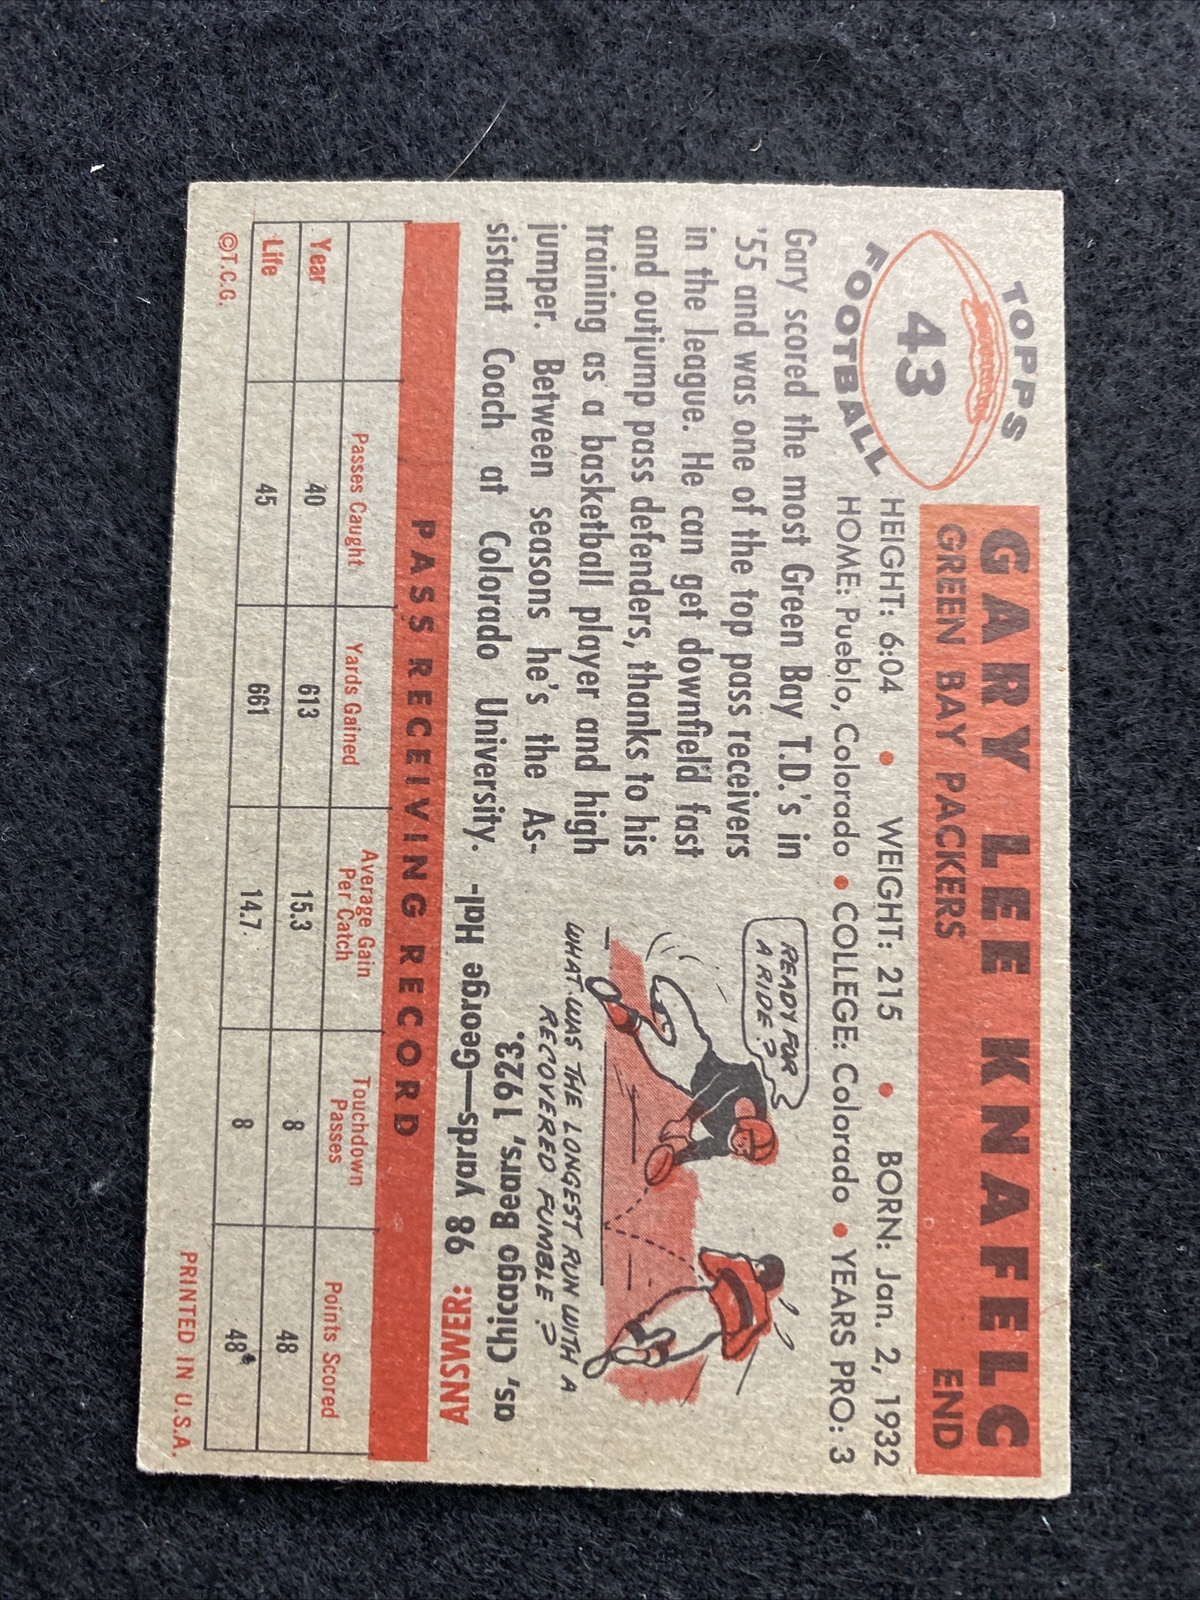 TOPPS
43
FOOTBALL
GARY LEE KNAFELC
GREEN BAY PACKERS END
HEIGHT: 6:04 • WEIGHT: 215 • BORN: Jan. 2, 1932
HOME: Pueblo, Colorado • COLLEGE: Colorado • YEARS PRO: 3
Gary scored the most Green Bay T.D.'s in
'55 and was one of the top pass receivers
in the league. He can get downfield fast
and outjump pass defenders, thanks to his
training as a basketball player and high
jumper. Between seasons he's the As-
sistant Coach at Colorado University.
READY FOR
A RIDE?
WHAT WAS THE LONGEST RUN WITH A
RECOVERED FUMBLE?
ANSWER: 98 yards—George Hal-
as, Chicago Bears, 1923.
PASS RECEIVING RECORD
Passes Caught Yards Gained Average Gain Per Catch Touchdown Passes Points Scored
Year 40 613 15.3 8 48
Life 45 661 14.7 8 48
©T.C.G. PRINTED IN U.S.A.